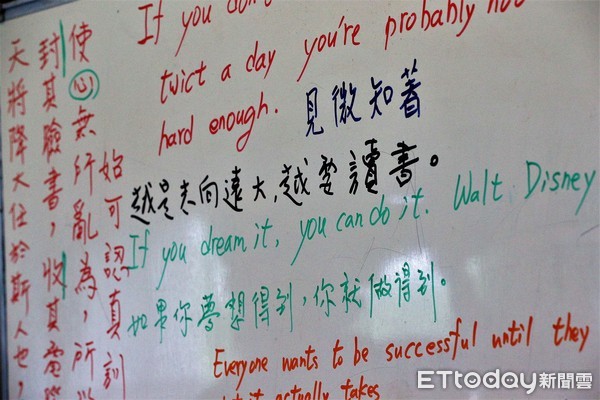 天將降大任於斯人也,
封其臉書,收其電
使心無所亂為,所
始可認真訓
If you don't
twict a day you're probably not
hard enough.
見微知著
越是志向遠大,越要讀書。
If you dream it, you can do it. Walt Disney
如果你夢想得到,你就做得到。
Everyone wants to be successful until they
it actually takes
ETtoday新聞雲